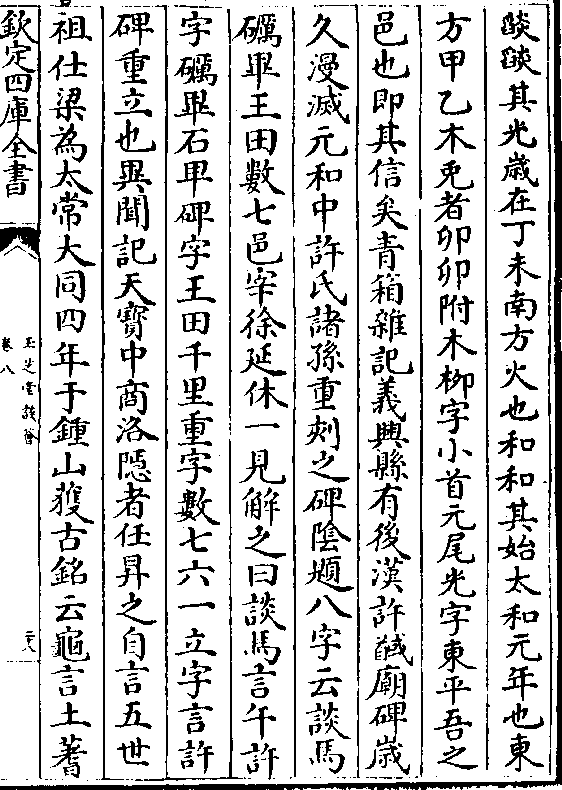 燄燄其光歳在丁未南方火也和和其始太和元年也東
方甲乙木兎者卯卯附木栁字小首元尾光字東平吾之
邑也即其信矣青箱雜記義興縣有後漢許馘廟碑歳
久漫滅元和中許氏諸孫重刻之碑隂題八字云談馬
礪畢王田數七邑宰徐延休一見解之曰談馬言午許
字礪畢石甲碑字王田千里重字數七六一立字言許
碑重立也異聞記天寶中商洛隠者任昇之自言五世
祖仕梁為太常大同四年于鍾山獲古銘云龜言土蓍
欽定四庫全書
玉芝堂談薈
卷八
二十八